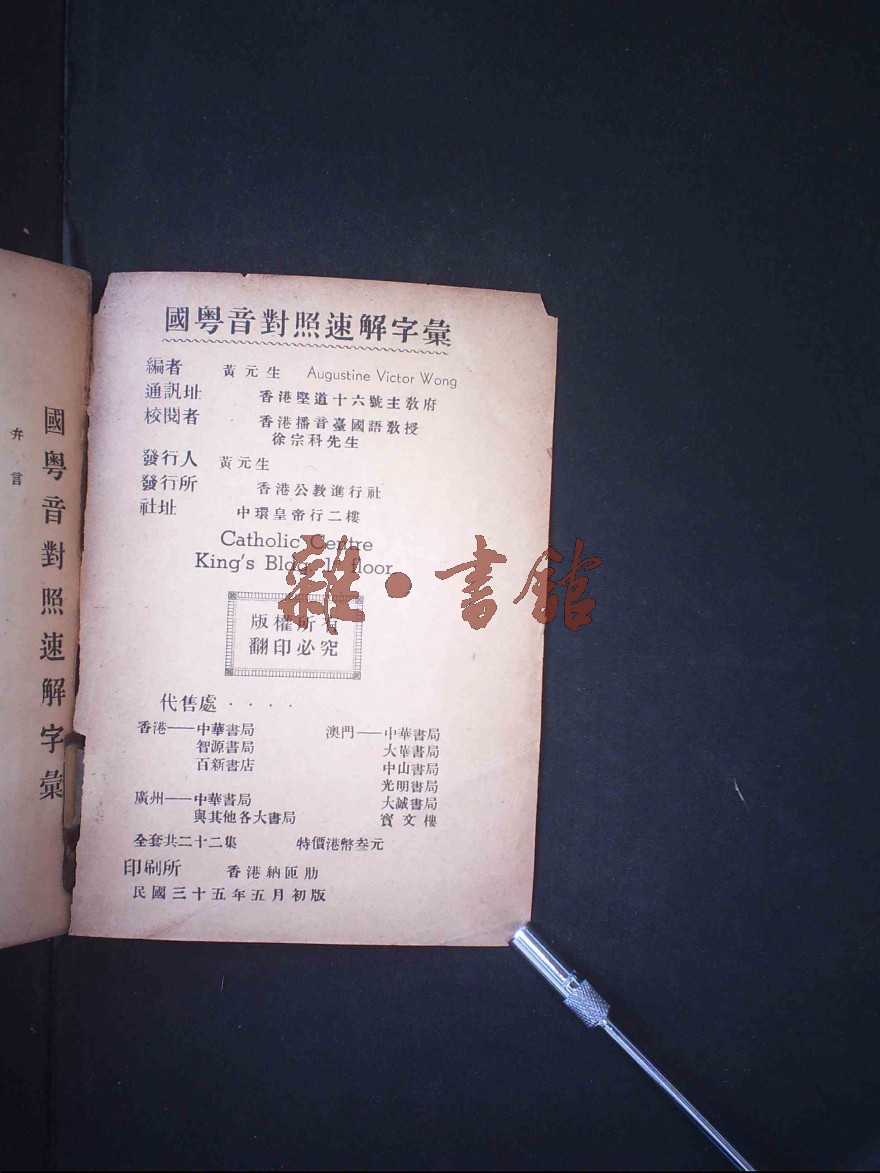 國粵音對照速解字彙
編者 黃元生 Augustine Victor Wong
通訊址 香港堅道十六號主教府
校閱者 香港播音臺國語教授
徐宗科先生
發行人 黃元生
發行所 香港公教進行社
社址 中環皇帝行二樓
Catholic Centre
King's Bldg. floor
雜·書館
版權所有
翻印必究
代售處····
香港——中華書局
智源書局
百新書店
廣州——中華書局
與其他各大書局
澳門——中華書局
大華書局
中山書局
光明書局
大誠書局
寶文樓
全套共二十二集 特價港幣叁元
印刷所 香港納匝肋
民國三十五年五月初版
國粵音對照速解字彙
弁言